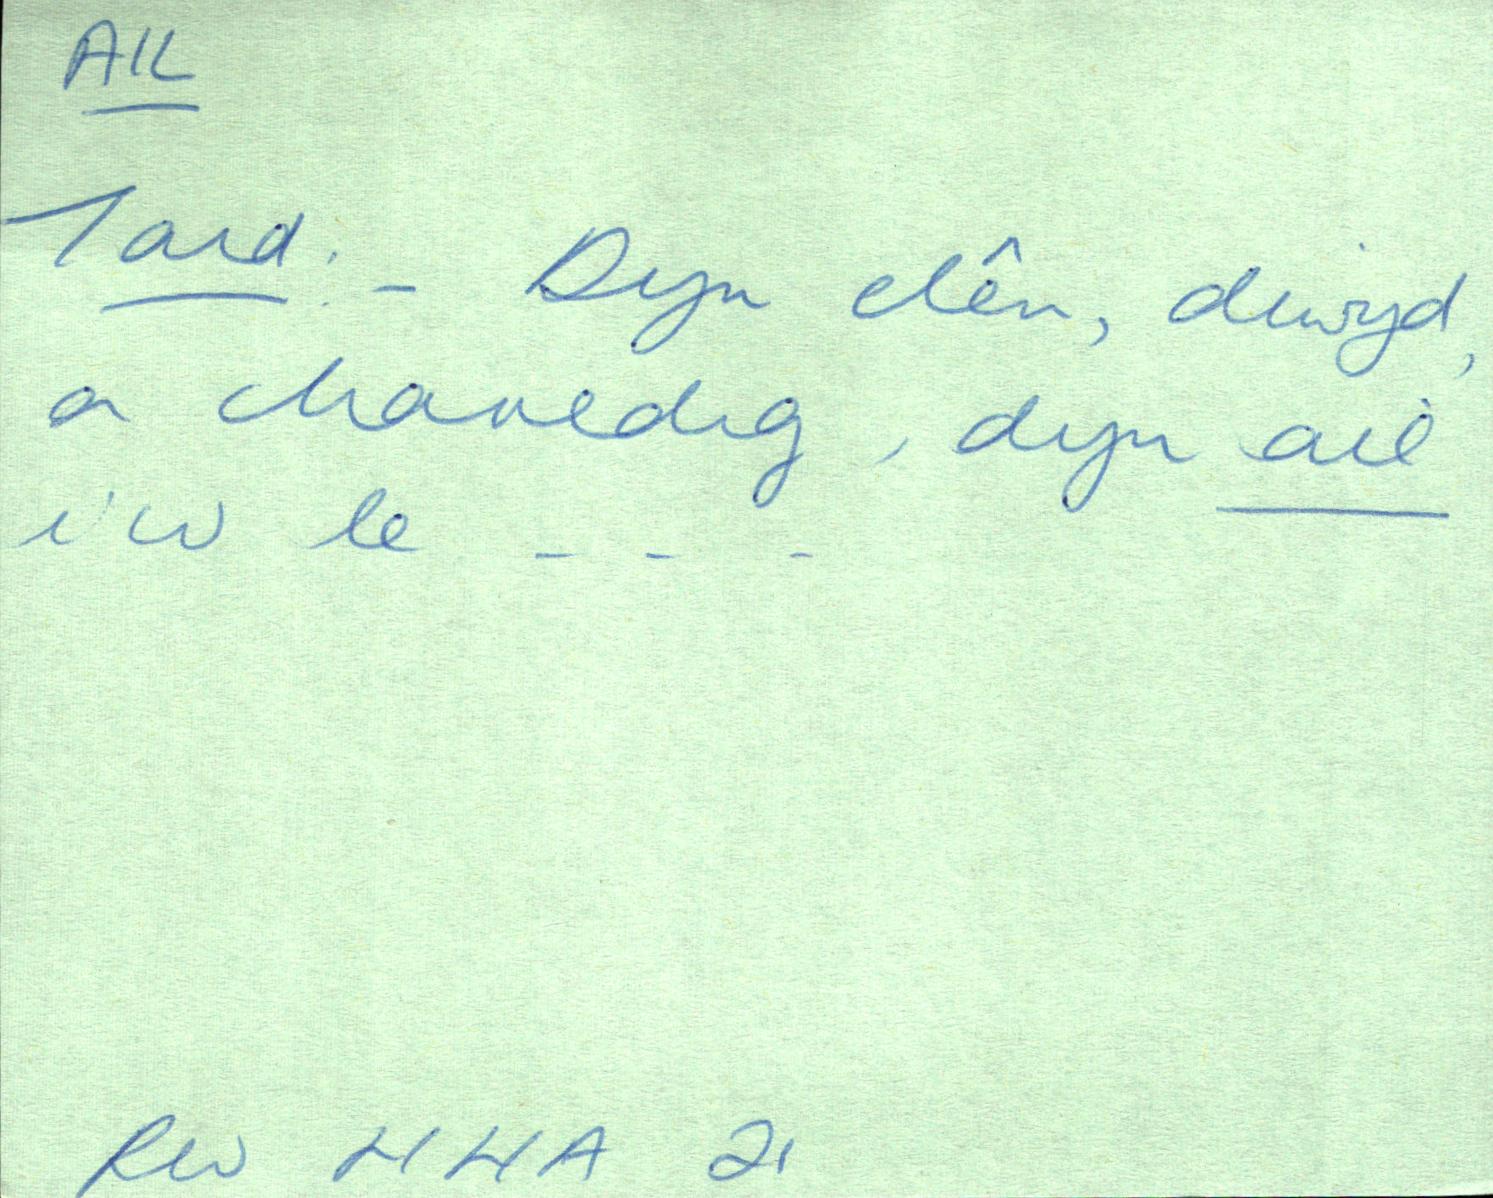 AIL
Tard. - Dyn clên, diwyd,
a charedig, dyn ail
i'w le - - -
RW HHA 21